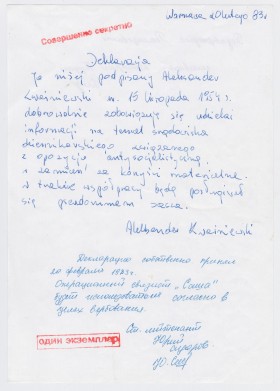 Warszawa 20 lutego 83r.
Совершенно секретно
Deklaracja
Ja niżej podpisany Aleksander
Kwaśniewski ur. 15 listopada 1954 r.
dobrowolnie zobowiązuję się udzielać
informacji na temat środowiska
dziennikarskiego związanego
z opozycją antysocjalistyczną
w zamian za korzyści materialne.
W trakcie współpracy będę posługiwał
się pseudonimem Sasza.
Aleksander Kwaśniewski
Декларацию собственно принял
20 февраля 1983г.
Операционный псевдоним "Саша"
будет использоваться согласно в
целях вербования.
Ст. лейтенант
Юрий
один экземпляр
Ю.